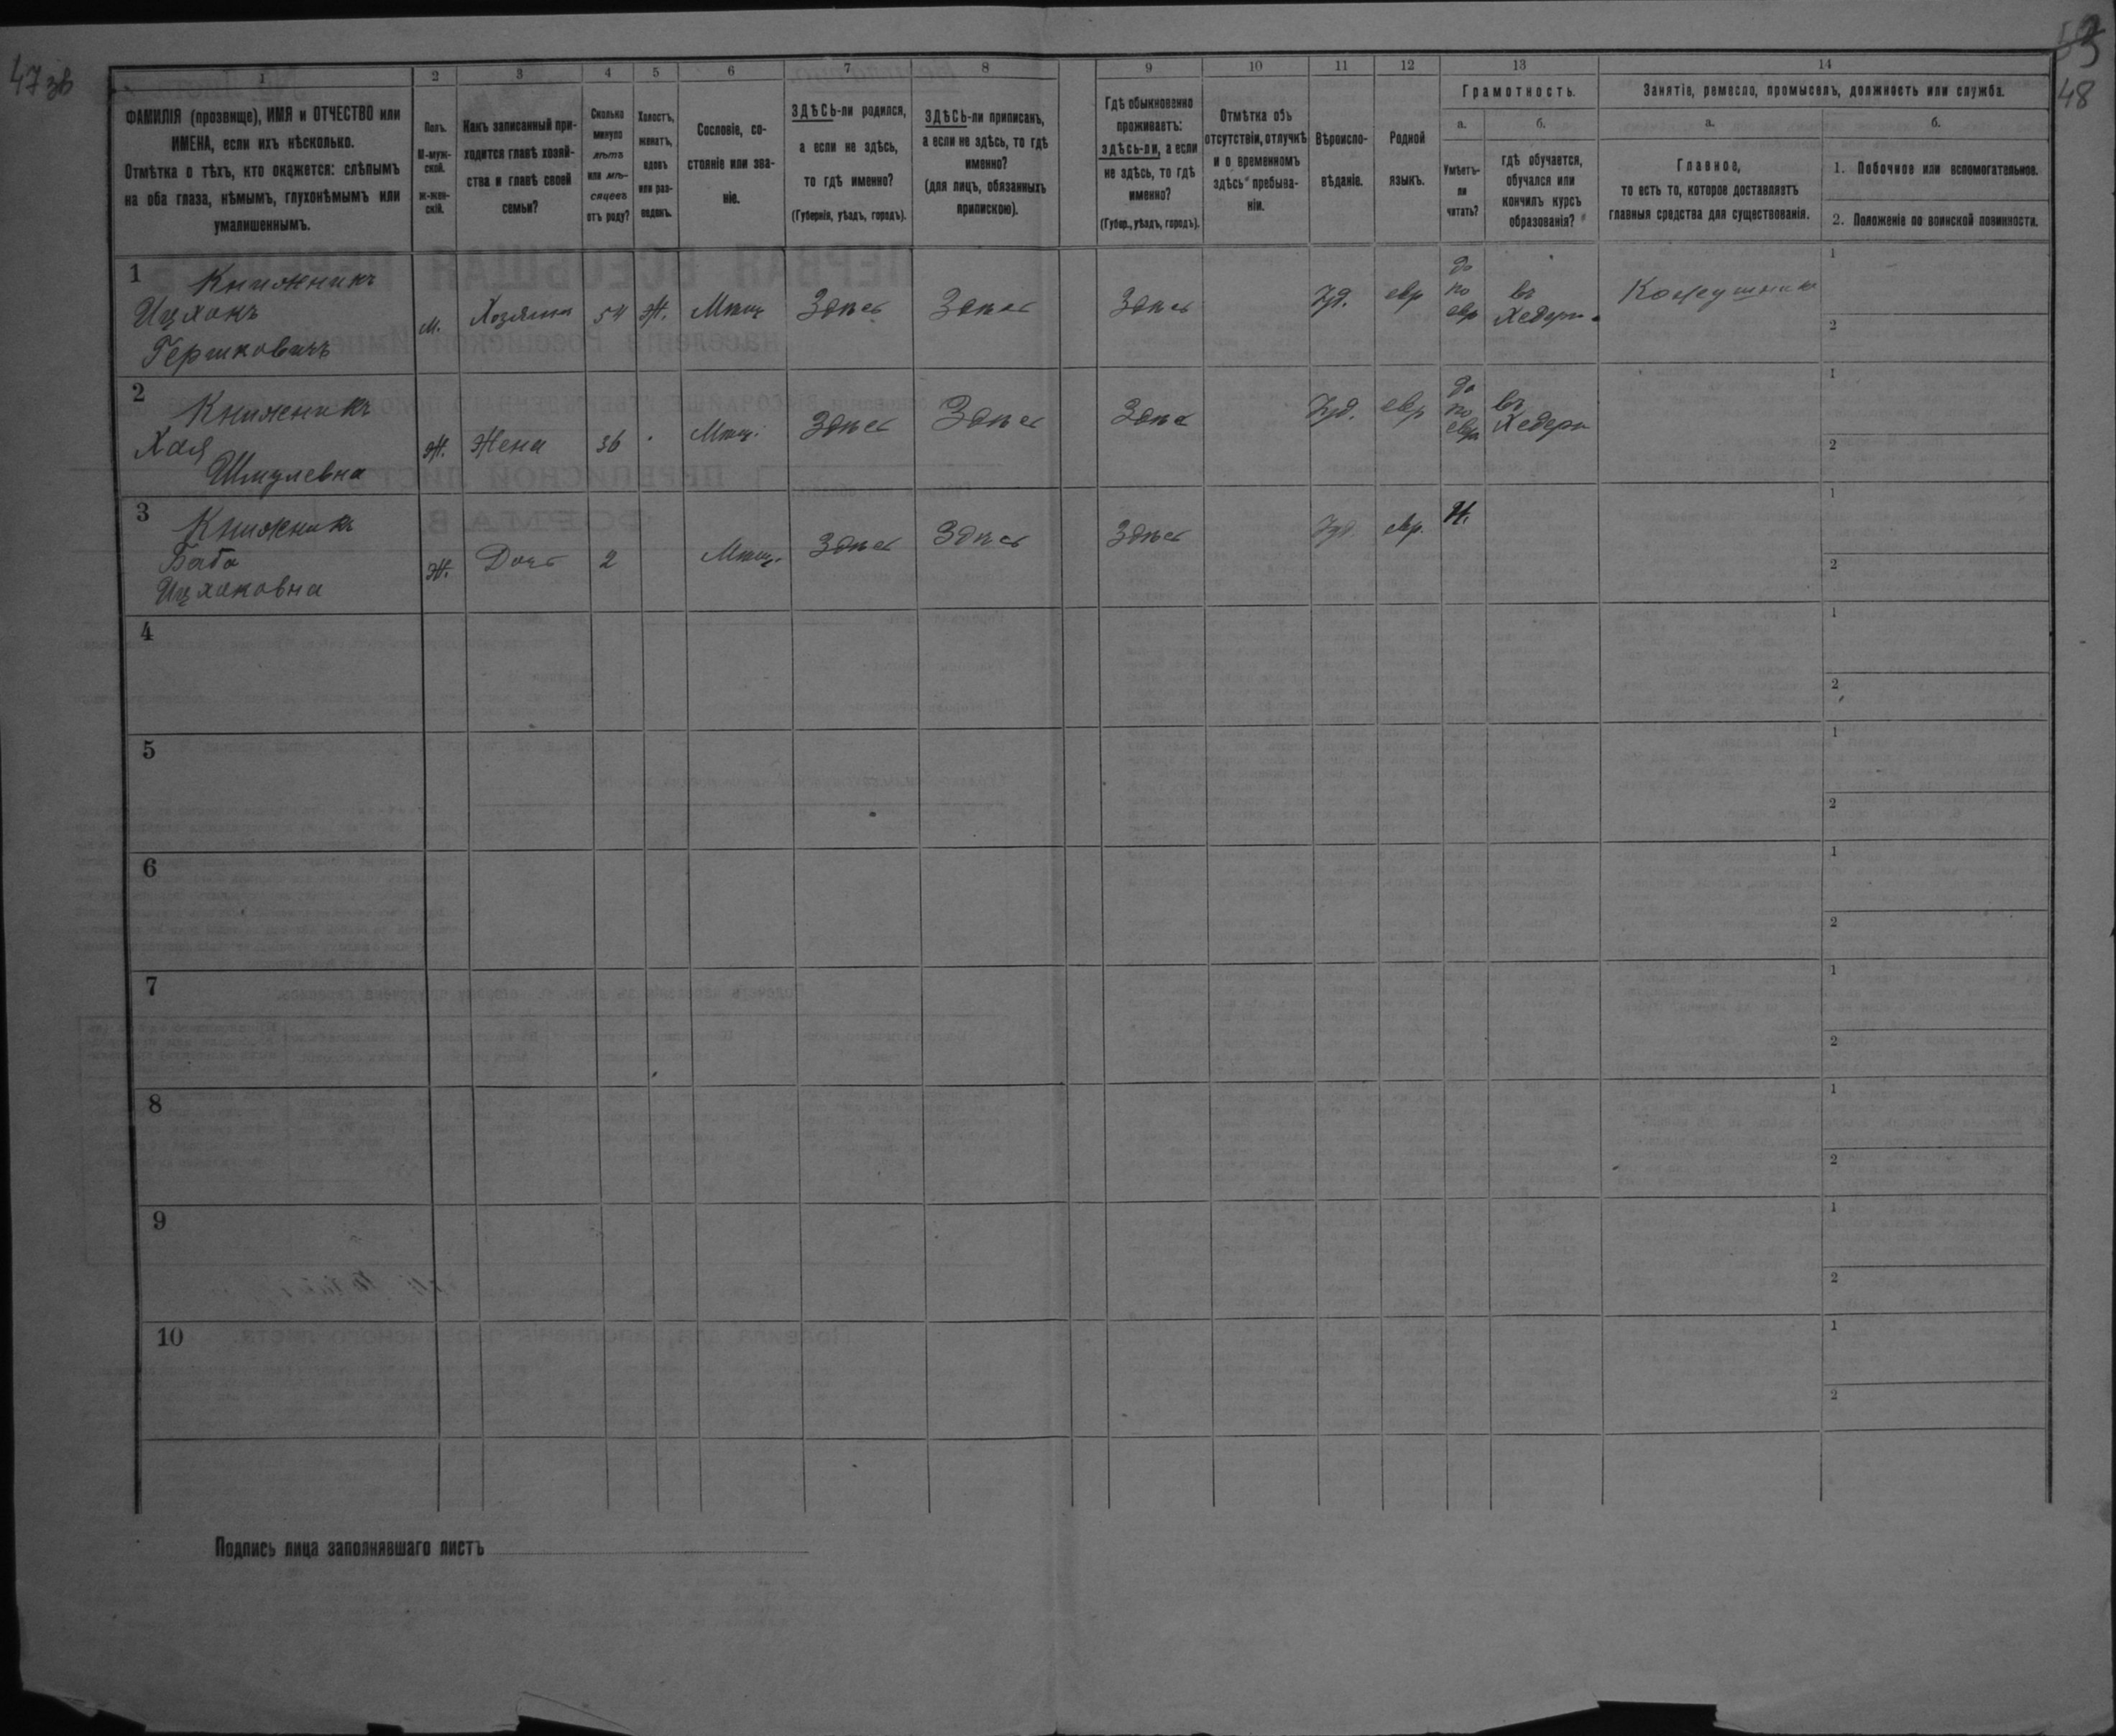 47 зв
53
48
1 2 3 4 5 6 7 8 9 10 11 12 13 14
ФАМИЛІЯ (прозвище), ИМЯ и ОТЧЕСТВО или
ИМЕНА, если ихъ нѣсколько.
Отмѣтка о тѣхъ, кто окажется: слѣпымъ
на оба глаза, нѣмымъ, глухонѣмымъ или
умалишеннымъ.
Полъ.
М-муж-
ской.
Ж-жен-
скій.
Какъ записанный при-
ходится главѣ хозяй-
ства и главѣ своей
семьи?
Сколько
минуло
лѣтъ
или мѣ-
сяцевъ
отъ роду?
Холостъ,
женатъ,
вдовъ
или раз-
веденъ.
Сословіе, со-
стояніе или зва-
ніе.
ЗДѢСЬ-ли родился,
а если не здѣсь,
то гдѣ именно?
(Губернія, уѣздъ, городъ).
ЗДѢСЬ-ли приписанъ,
а если не здѣсь, то гдѣ
именно?
(для лицъ, обязанныхъ
припискою).
Гдѣ обыкновенно
проживаетъ:
здѣсь-ли, а если
не здѣсь, то гдѣ
именно?
(Губер., уѣздъ, городъ).
Отмѣтка объ
отсутствіи, отлучкѣ
и о временномъ
здѣсь пребыва-
ніи.
Вѣроиспо-
вѣданіе.
Родной
языкъ.
Грамотность.
а.
Умѣетъ-
ли
читать?
б.
гдѣ обучается,
обучался или
кончилъ курсъ
образованія?
Занятіе, ремесло, промыселъ, должность или служба.
а.
Главное,
то есть то, которое доставляетъ
главныя средства для существованія.
б.
1. Побочное или вспомогательное.
2. Положеніе по воинской повинности.
1
Книжникъ
Ицхокъ
Гершковичъ
м. Хозяинъ 54 Ж. Мѣщ Здѣсь Здѣсь Здѣсь Іуд. евр
да
по
евр
въ
Хедерѣ
1
2
2
Книжникъ
Хая
Шмулевна
Ж. Жена 36 Мѣщ. Здѣсь Здѣсь Здѣсь Іуд. евр
да
по
евр
въ
Хедерѣ
1
2
3
Книжникъ
Баба
Ицхоковна
Ж. Дочь 2 Мѣщ. Здѣсь Здѣсь Здѣсь Іуд. евр. Н.
1
2
4
1
2
5
1
2
6
1
2
7
1
2
8
1
2
9
1
2
10
1
2
Подпись лица заполнявшаго листъ